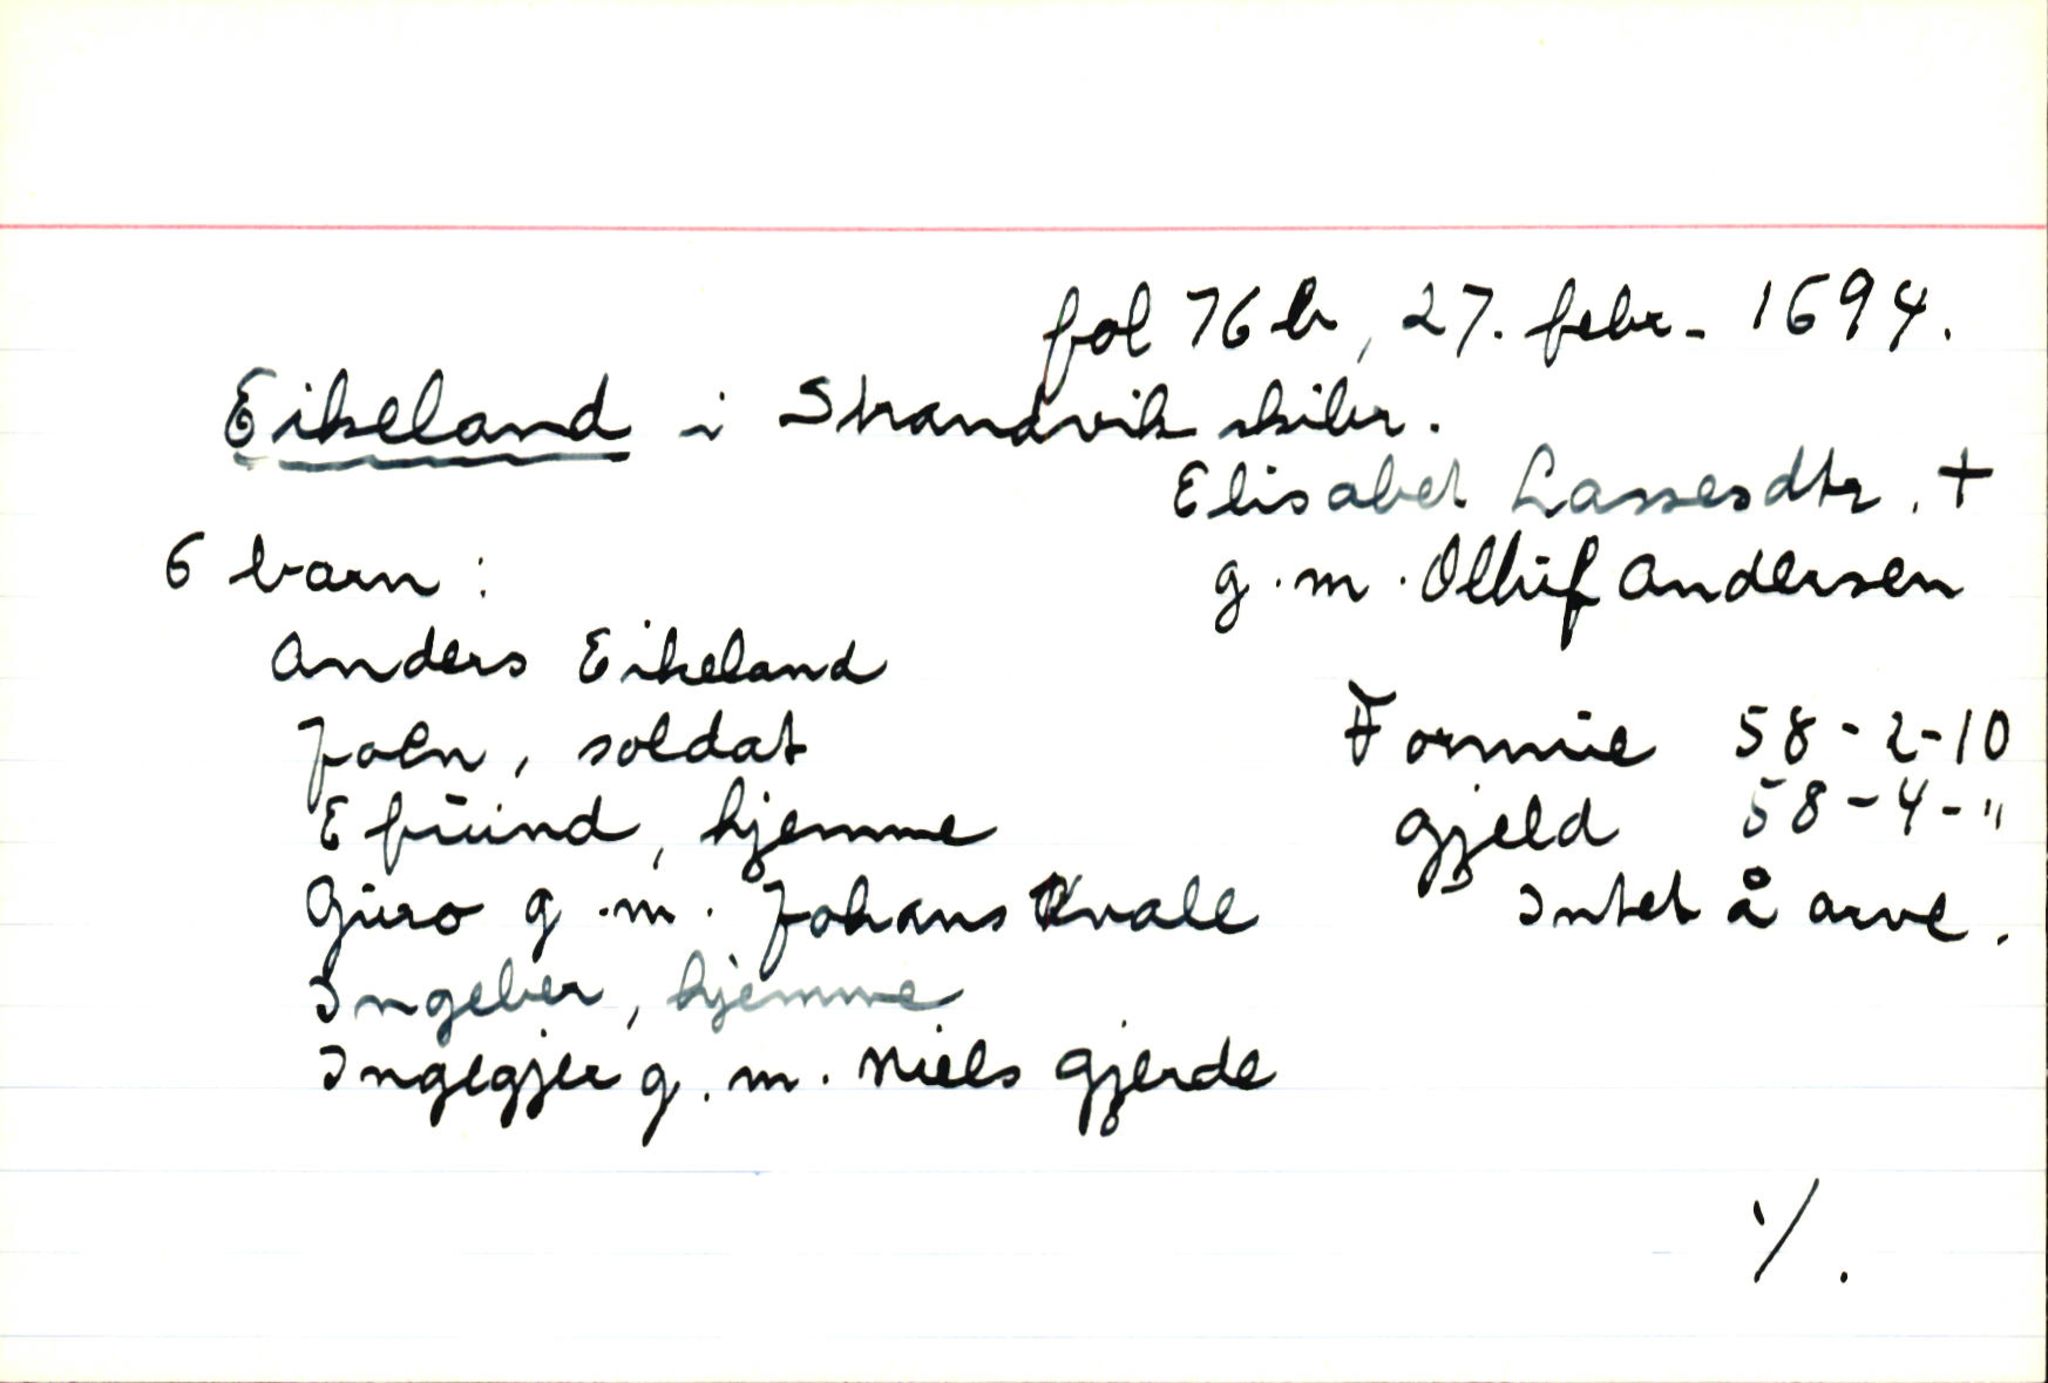 fol 76 b, 27. febr. 1694.
Eikeland i Strandvik skibr.
Elisabet Lassesdtr. +
6 barn:
g.m. Olluf Andersen
Anders Eikeland
Joen, soldat
Formue 58-2-10
Efuind, hjemme
gjeld 58-4-"
Guro g.m. Johans Kvale
Intet å arve.
Ingeber, hjemme
Ingegjer g.m. Niels Gjerde
·/.